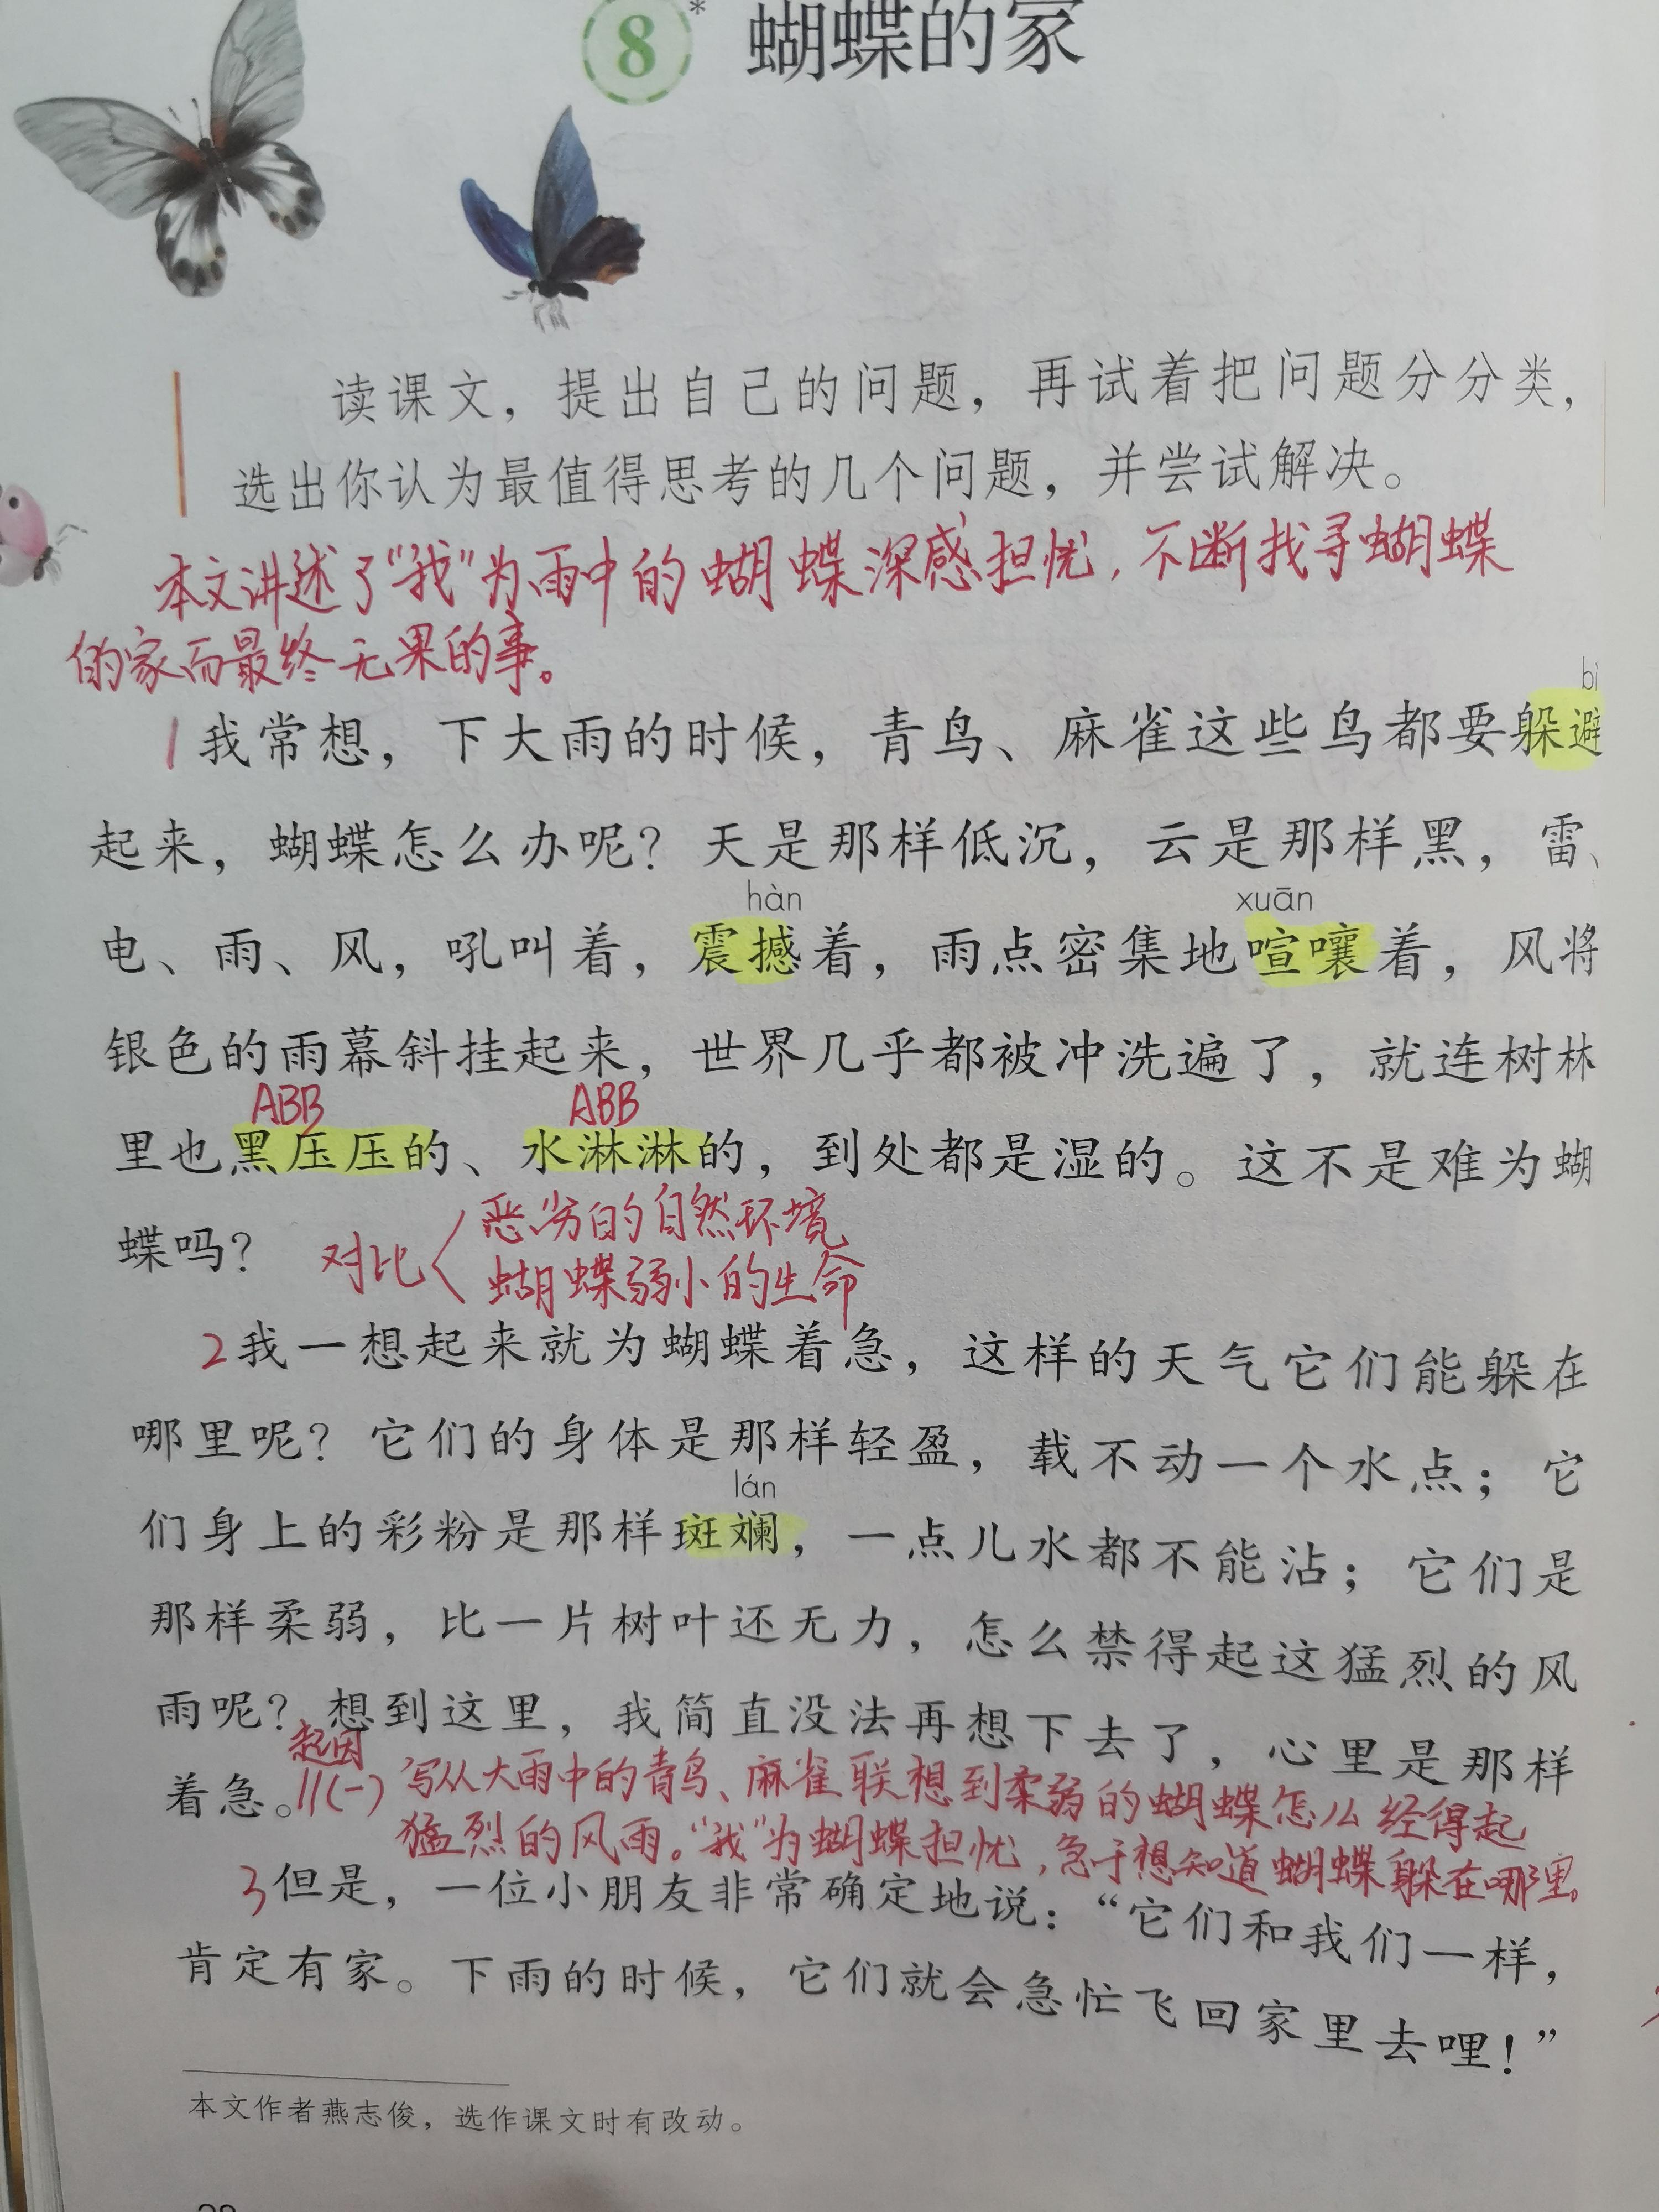 8* 蝴蝶的家
读课文，提出自己的问题，再试着把问题分分类，
选出你认为最值得思考的几个问题，并尝试解决。
本文讲述了“我”为雨中的蝴蝶深感担忧，不断找寻蝴蝶
的家而最终无果的事。
bì
1我常想，下大雨的时候，青鸟、麻雀这些鸟都要躲避
起来，蝴蝶怎么办呢？天是那样低沉，云是那样黑，雷、
hàn xuān
电、雨、风，吼叫着，震撼着，雨点密集地喧嚷着，风将
银色的雨幕斜挂起来，世界几乎都被冲洗遍了，就连树林
ABB ABB
里也黑压压的、水淋淋的，到处都是湿的。这不是难为蝴
蝶吗？
对比
恶劣的自然环境
蝴蝶弱小的生命
2我一想起来就为蝴蝶着急，这样的天气它们能躲在
哪里呢？它们的身体是那样轻盈，载不动一个水点；它
lán
们身上的彩粉是那样斑斓，一点儿水都不能沾；它们是
那样柔弱，比一片树叶还无力，怎么禁得起这猛烈的风
雨呢？想到这里，我简直没法再想下去了，心里是那样
着急。
起因
//(一)写从大雨中的青鸟、麻雀联想到柔弱的蝴蝶怎么经得起
猛烈的风雨。“我”为蝴蝶担忧，急于想知道蝴蝶躲在哪里。
3但是，一位小朋友非常确定地说：“它们和我们一样，
肯定有家。下雨的时候，它们就会急忙飞回家里去哩！”
本文作者燕志俊，选作课文时有改动。